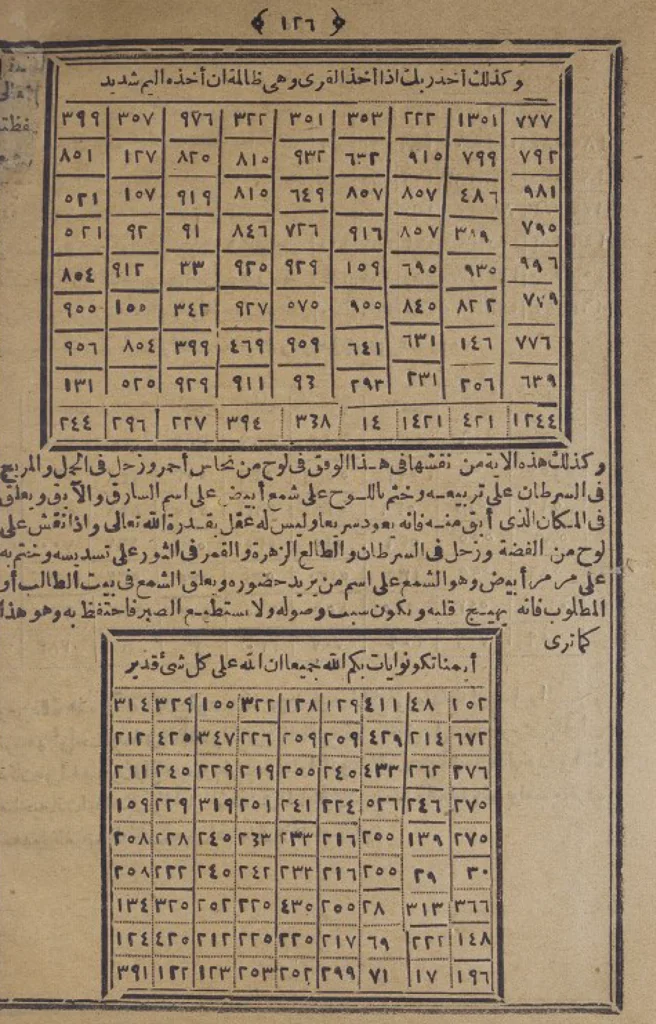 ﴿ ١٢٦ ﴾
وكذلك أخذ ربك اذا أخذ القرى وهى ظالمة ان أخذه اليم شديد
٣٩٩ ٣٥٧ ٩٧٦ ٣٢٢ ٣٥١ ٣٥٣ ٢٢٢ ١٣٥١ ٧٧٧
٨٥١ ١٢٧ ٨٢٥ ٨١٥ ٩٣٢ ٦٣٢ ٩١٥ ٧٩٩ ٧٩٢
٥٢١ ١٥٧ ٩١٩ ٨١٥ ٦٤٩ ٨٥٧ ٨٥٧ ٤٨٦ ٩٨١
٥٢١ ٩٢ ٩١ ٨٤٦ ٧٢٦ ٩١٦ ٨٥٧ ٣٨٩ ٧٩٥
٨٥٤ ٩١٢ ٣٣ ٩٢٥ ٩٢٩ ١٥٩ ٦٩٥ ٩٣٥ ٩٩٦
٩٥٥ ١٥٥ ٣٤٢ ٩٢٧ ٥٧٥ ٩٥٥ ٨٤٥ ٨٢٢ ٧٧٩
٩٥٦ ٨٥٤ ٣٩٩ ٤٦٩ ٩٥٩ ٦٤١ ٦٣١ ١٤٦ ٧٧٦
١٣١ ٥٢٥ ٩٢٩ ٩١١ ٩٣ ٢٩٣ ٢٣١ ٢٥٦ ٦٣٩
٢٤٤ ٢٩٦ ٢٢٧ ٣٩٤ ٣٣٨ ١٤ ١٤٢١ ٤٢١ ١٢٤٤
وكذلك هذه الآية من نقشها فى هذا الوفق فى لوح من نحاس أحمر وزحل فى الحمل والمريخ
فى السرطان على تربيعه وختم باللوح على شمع أبيض على اسم السارق والآبق ويعلق
فى المكان الذى أبق منه فانه يعود سريعا وليس له عقل بقدرة الله تعالى واذا نقش على
لوح من الفضة وزحل فى السرطان والطالع الزهرة والقمر فى الثور على تسديسه وختم به
على مرمر أبيض وهو الشمع على اسم من يريد حضوره ويعلق الشمع فى بيت الطالب أو
المطلوب فانه يهيج قلبه ويكون سبب وصوله ولا يستطيع الصبر فاحتفظ به وهو هذا
كما ترى
أينما تكونوا يات بكم الله جميعا ان الله على كل شئ قدير
٣١٤ ٣٢٩ ١٥٥ ٣٢٢ ١٢٨ ١٢٩ ٤١١ ٤٨ ١٥٢
٢١٢ ٤٢٥ ٣٤٧ ٢٢٦ ٢٥٩ ٢٥٩ ٤٢٩ ٢١٤ ٦٧٢
٢١١ ٢٤٥ ٢٢٩ ٢١٩ ٢٥٥ ٢٤٥ ٤٣٣ ٢٦٢ ٢٧٦
١٥٩ ٢٢٩ ٣١٩ ٢٥١ ٢٤١ ٢٢٤ ٥٢٦ ٢٤٦ ٢٧٥
٢٥٨ ٢٢٨ ٢٤٥ ٢٦٣ ٢٣٣ ٢١٦ ٢٥٥ ١٣٩ ٢٧٥
٢٥٨ ٢٢٢ ٢٤٥ ٢٤٢ ٢٣٢ ٢١٦ ٢٥٥ ٢٩ ٣٠
١٣٤ ٣٢٥ ٢٥٢ ٢٢٥ ٤٣٥ ٢٥٥ ٢٨ ٣١٣ ٣٦٦
١٢٤ ٤٢٥ ٢١٢ ٢٢٥ ٢٢٥ ٢١٧ ٦٩ ٢٢٢ ١٤٨
٣٩١ ١٢٢ ١٢٣ ٢٥٣ ٢٥٢ ٢٩٩ ٧١ ١٧ ١٩٦